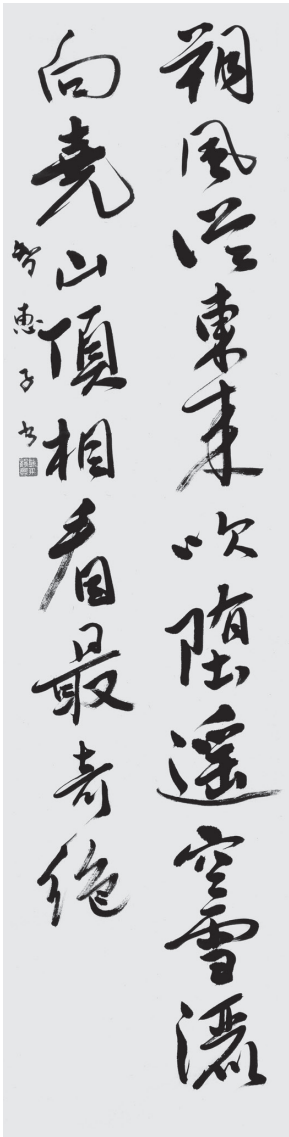 朔風從東来吹堕遥空雪灑
向堯山頂相看最奇絶
智惠子書